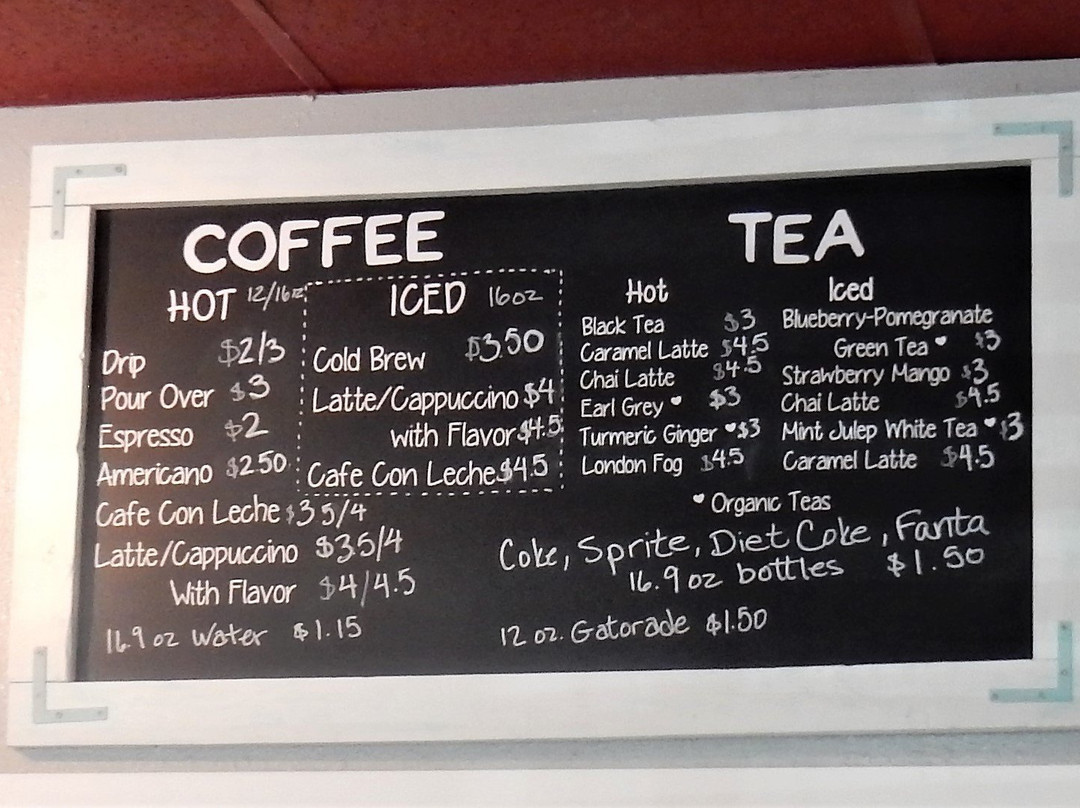 COFFEE
HOT 12/16oz
Drip $2/3
Pour Over $3
Espresso $2
Americano $2.50
Cafe Con Leche $3.5/4
Latte/Cappuccino $3.5/4
With Flavor $4/4.5
16.9 oz Water $1.15
ICED 16oz
Cold Brew $3.50
Latte/Cappuccino $4
with Flavor $4.5
Cafe Con Leche $4.5
TEA
Hot
Black Tea $3
Caramel Latte $4.5
Chai Latte $4.5
Earl Grey ♥ $3
Turmeric Ginger ♥ $3
London Fog $4.5
Iced
Blueberry-Pomegranate
Green Tea ♥ $3
Strawberry Mango $3
Chai Latte $4.5
Mint Julep White Tea ♥ $3
Caramel Latte $4.5
♥ Organic Teas
Coke, Sprite, Diet Coke, Fanta
16.9 oz bottles $1.50
12 oz. Gatorade $1.50